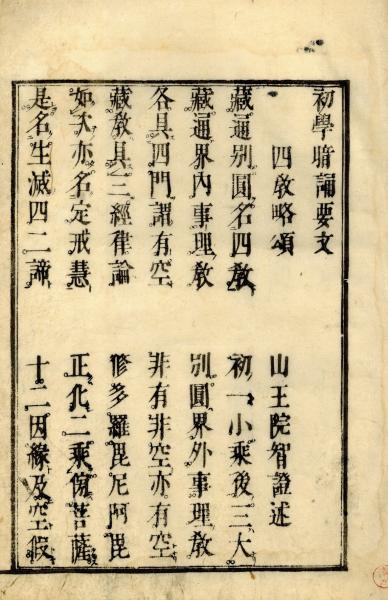 初學暗誦要文
四教略頌
山王院智證述
藏通別圓名四教
初一小乘後三大
藏通界內事理教
別圓界外事理教
各具四門謂有空
非有非空亦有空
藏教具三經律論
修多羅毘尼阿毘
如次亦名定戒慧
正化二乘傍菩薩
是名生滅四二諦
十二因緣及空假